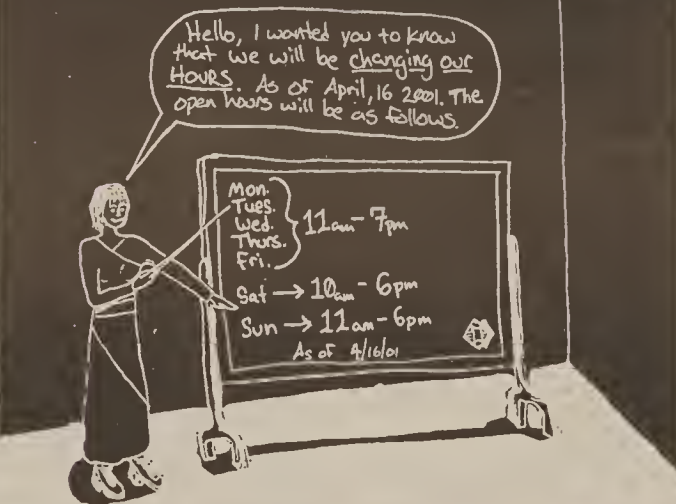 Hello, I wanted you to know
that we will be changing our
HOURS. As of April, 16 2001. The
open hours will be as follows.
Mon.
Tues.
Wed.
Thurs.
Fri.
11am - 7pm
Sat → 10am - 6pm
Sun → 11am - 6pm
As of 4/16/01